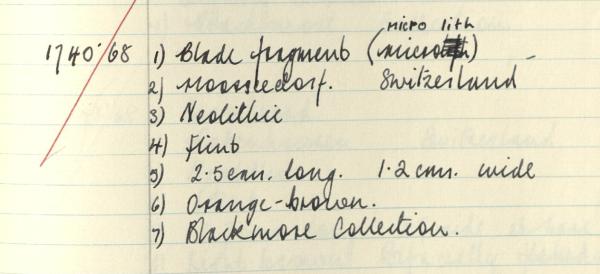 micro lith
1740'68 1) Blade fragment (microlith)
2) Moosseedorf. Switzerland
3) Neolithic
4) Flint
5) 2.5cm. long. 1.2cm. wide
6) Orange-brown.
7) Blackmore Collection.